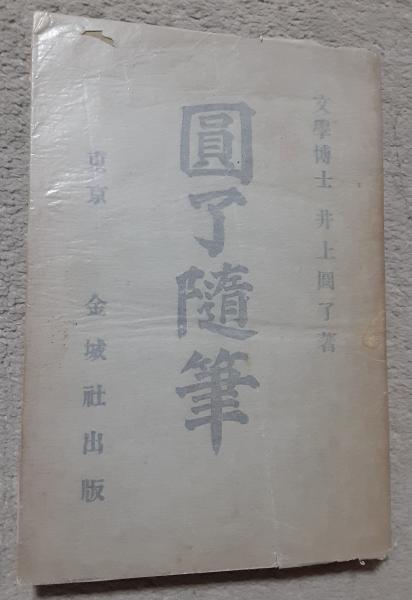 文學博士 井上圓了著
圓了隨筆
東京 金城社出版